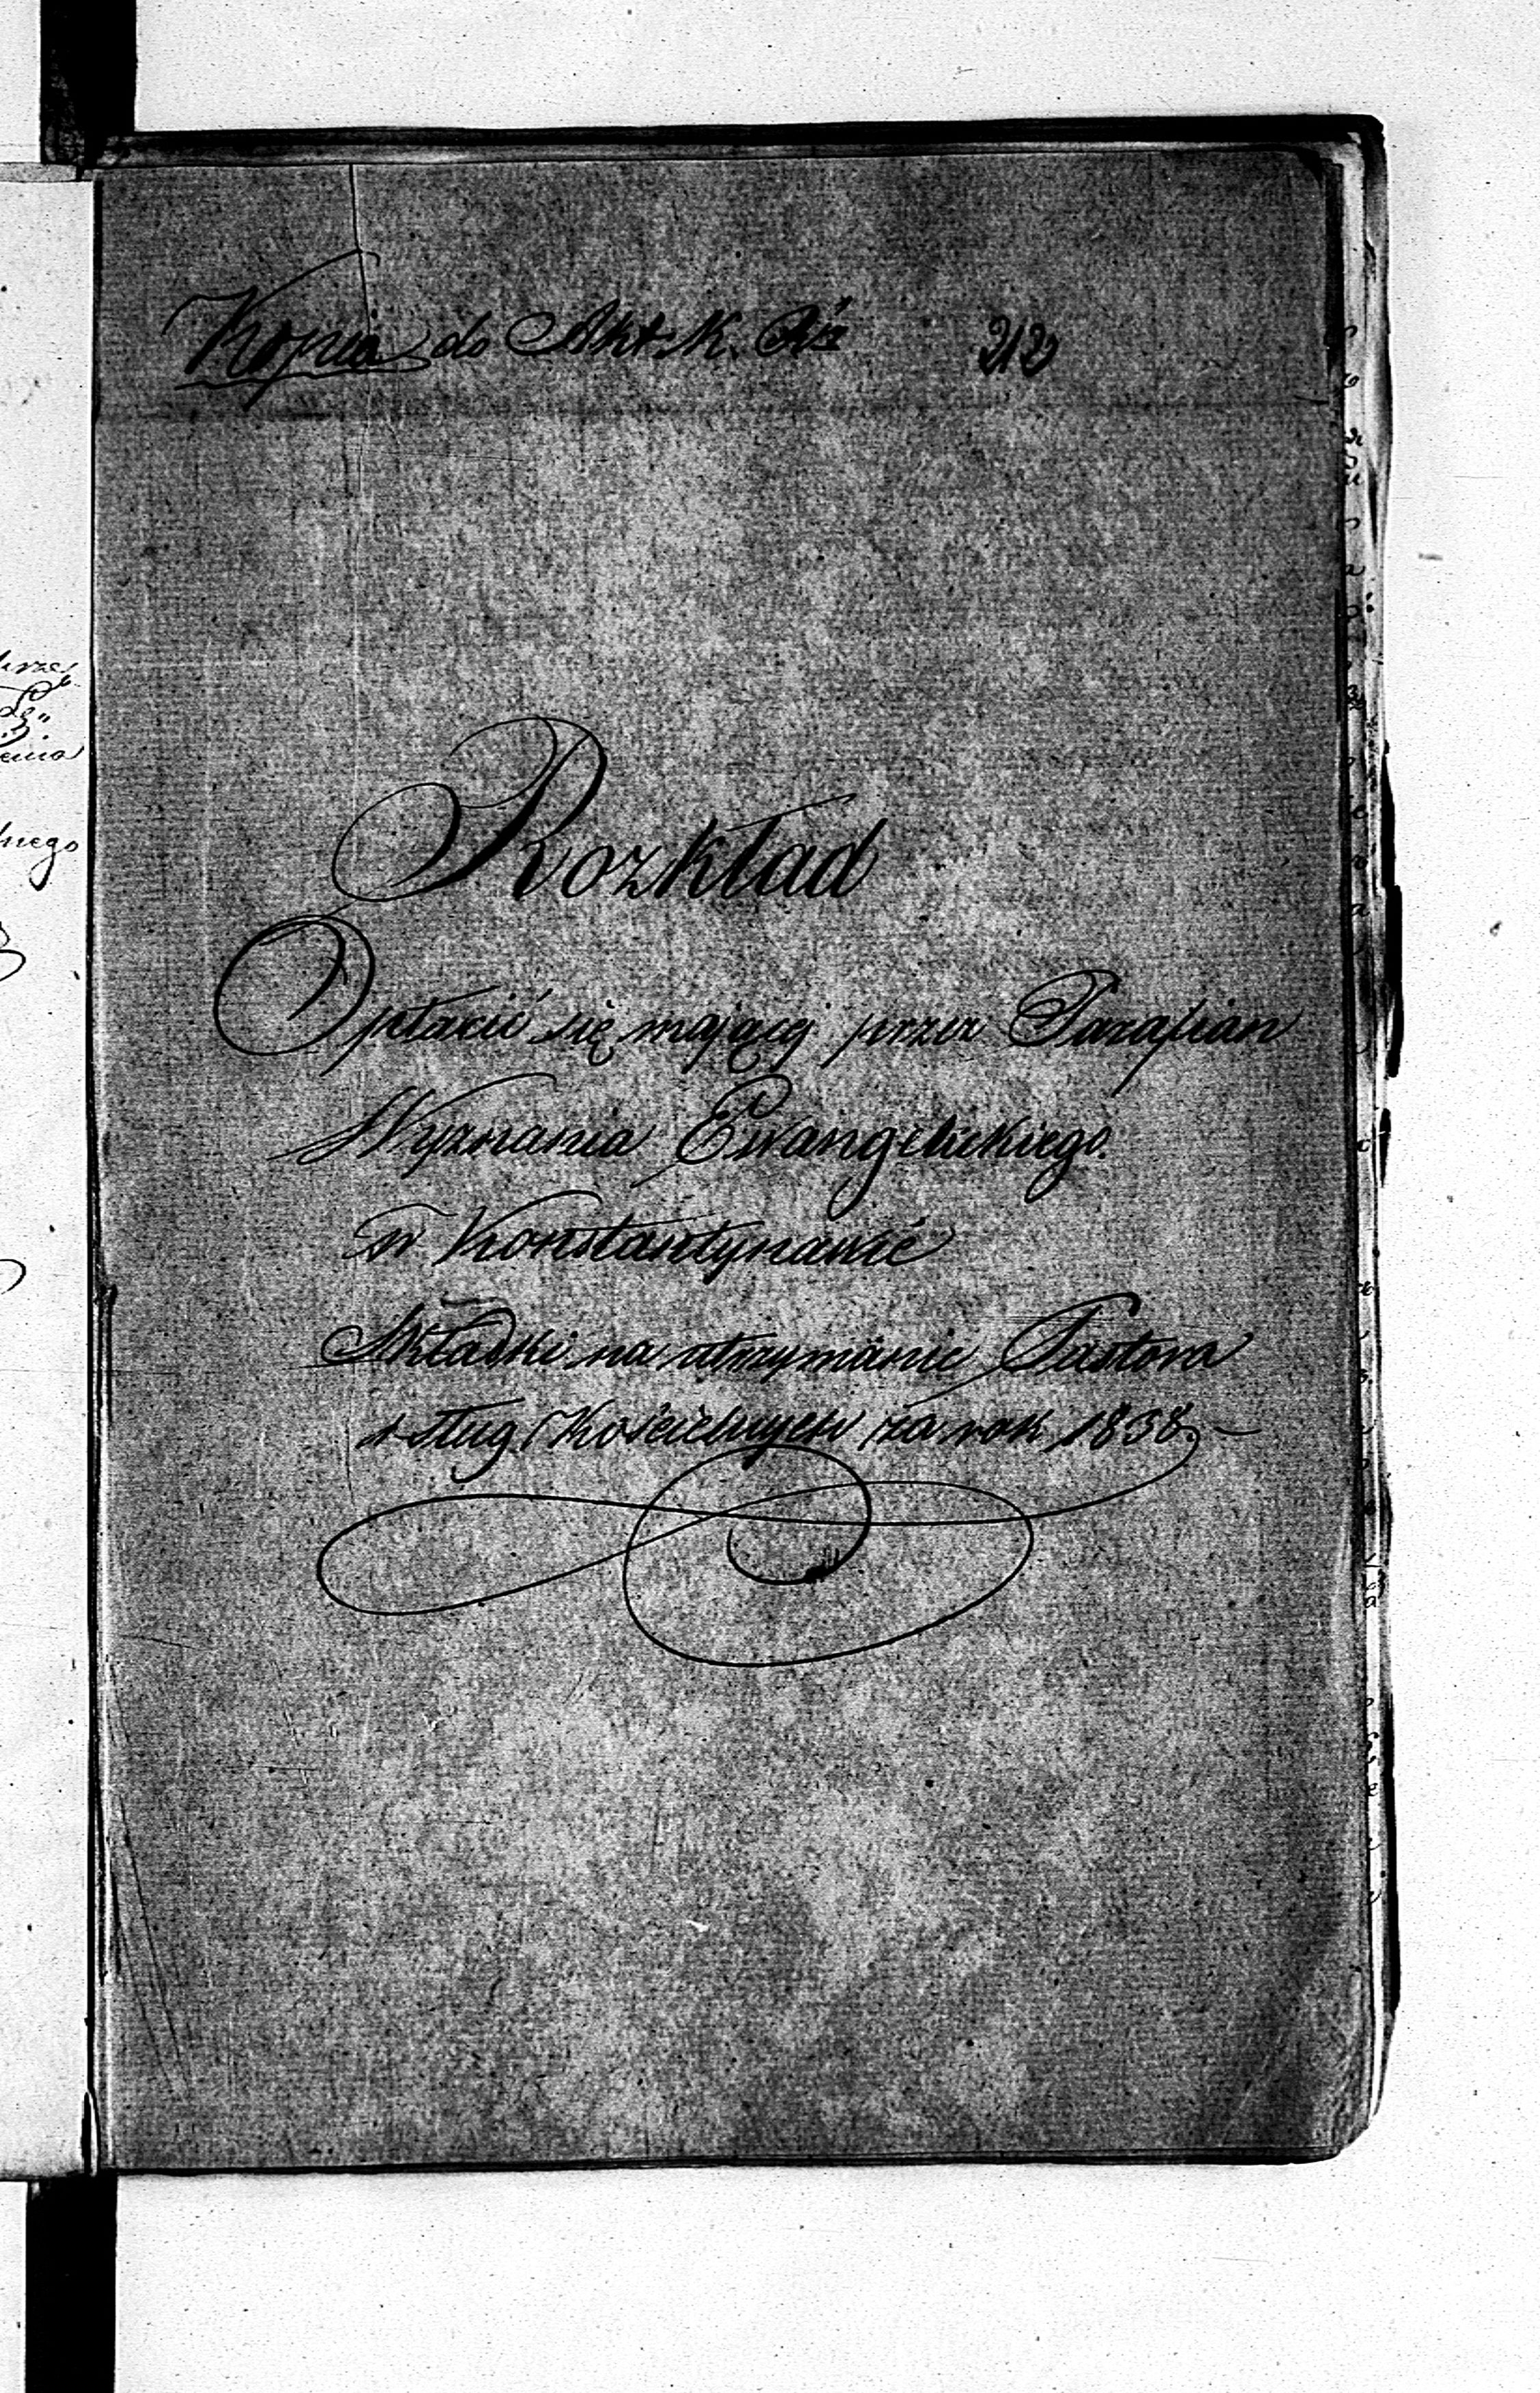 Kopia do Akt K. 212
Rozkład
Opłacić się mającej przez Parafian
Wyznania Ewangelickiego.
w Konstantynowie
Składki na utrzymanie Pastora
i sług Kościelnych za rok 1838.